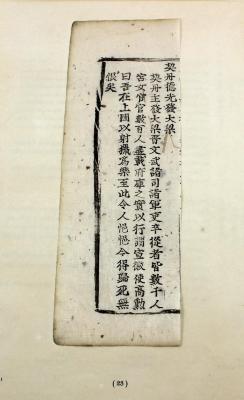 契丹德光發大梁
契丹主發大梁晉文武諸司諸軍吏卒從者皆數千人
宮女宦官數百人盡載府庫之實以行謂宣徽使高勳
曰吾在上國以射獵為樂至此令人悒悒今得歸死無
恨矣
(23)